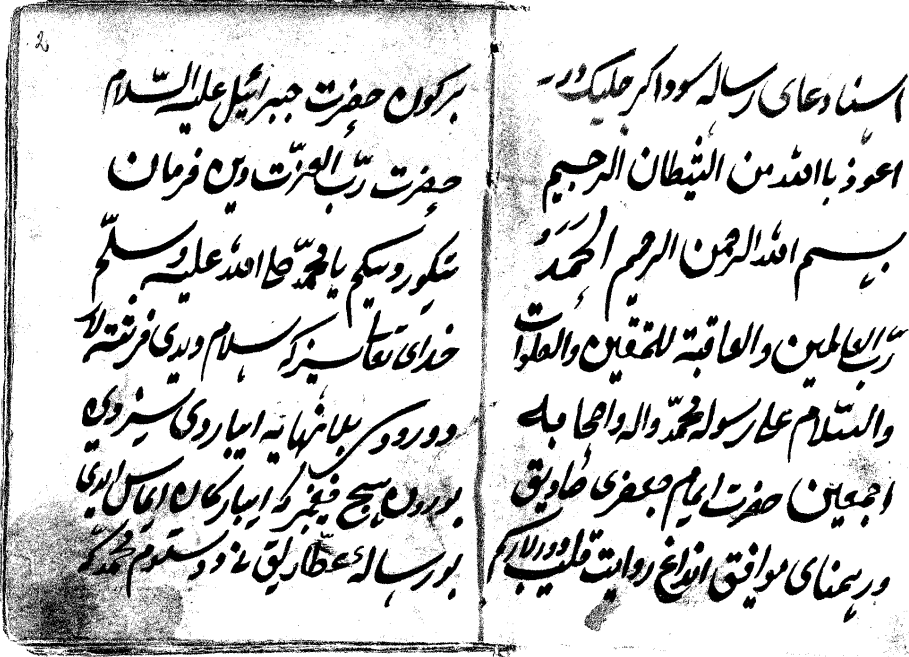 اسناد دعای رساله سوداکر جلیک دور
اعوذ باالله من الشیطان الرجیم
بسم الله الرحمن الرحیم الحمد
رب العالمین والعاقبة للمتقین والصلوات
والسّلام علی رسوله محمّد واله واصحابه
اجمعین حضرت ایمام جعفری صادیق
ورهمنای موافق انداغ روایت قلیب دورلارکم
2
برکون حضرت جبرائیل علیه السّلام
حضرت ربّ العزّت دین فرمان
یا محمّد صلی الله علیه وسلّم
خدای تعالی سیزکه سلام دیدی فرشته لار
دورود بلانهایه ایباردی سیزدین
بورون هیچ فیغمبرکه ایبارکان ایماس ایردی
بو رساله عطارلیق نی دوستوم محمدکه